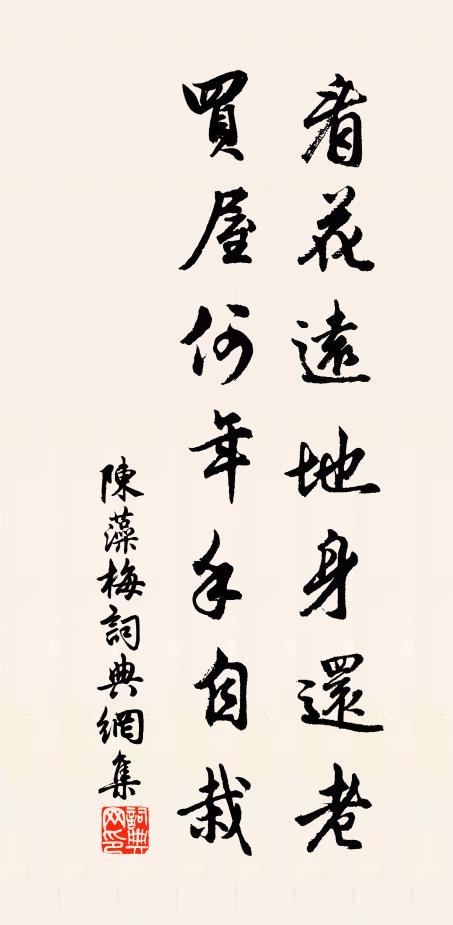 看花遠地身還老
買屋何年手自栽
陳藻梅詞典網集
詞典網印